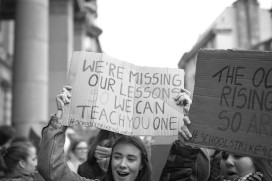 WE'RE MISSING
OUR LESSONS
SO WE CAN
TEACH YOU ONE
THE OC
RISING
SO AR
#SCHOOLSTRIKE4